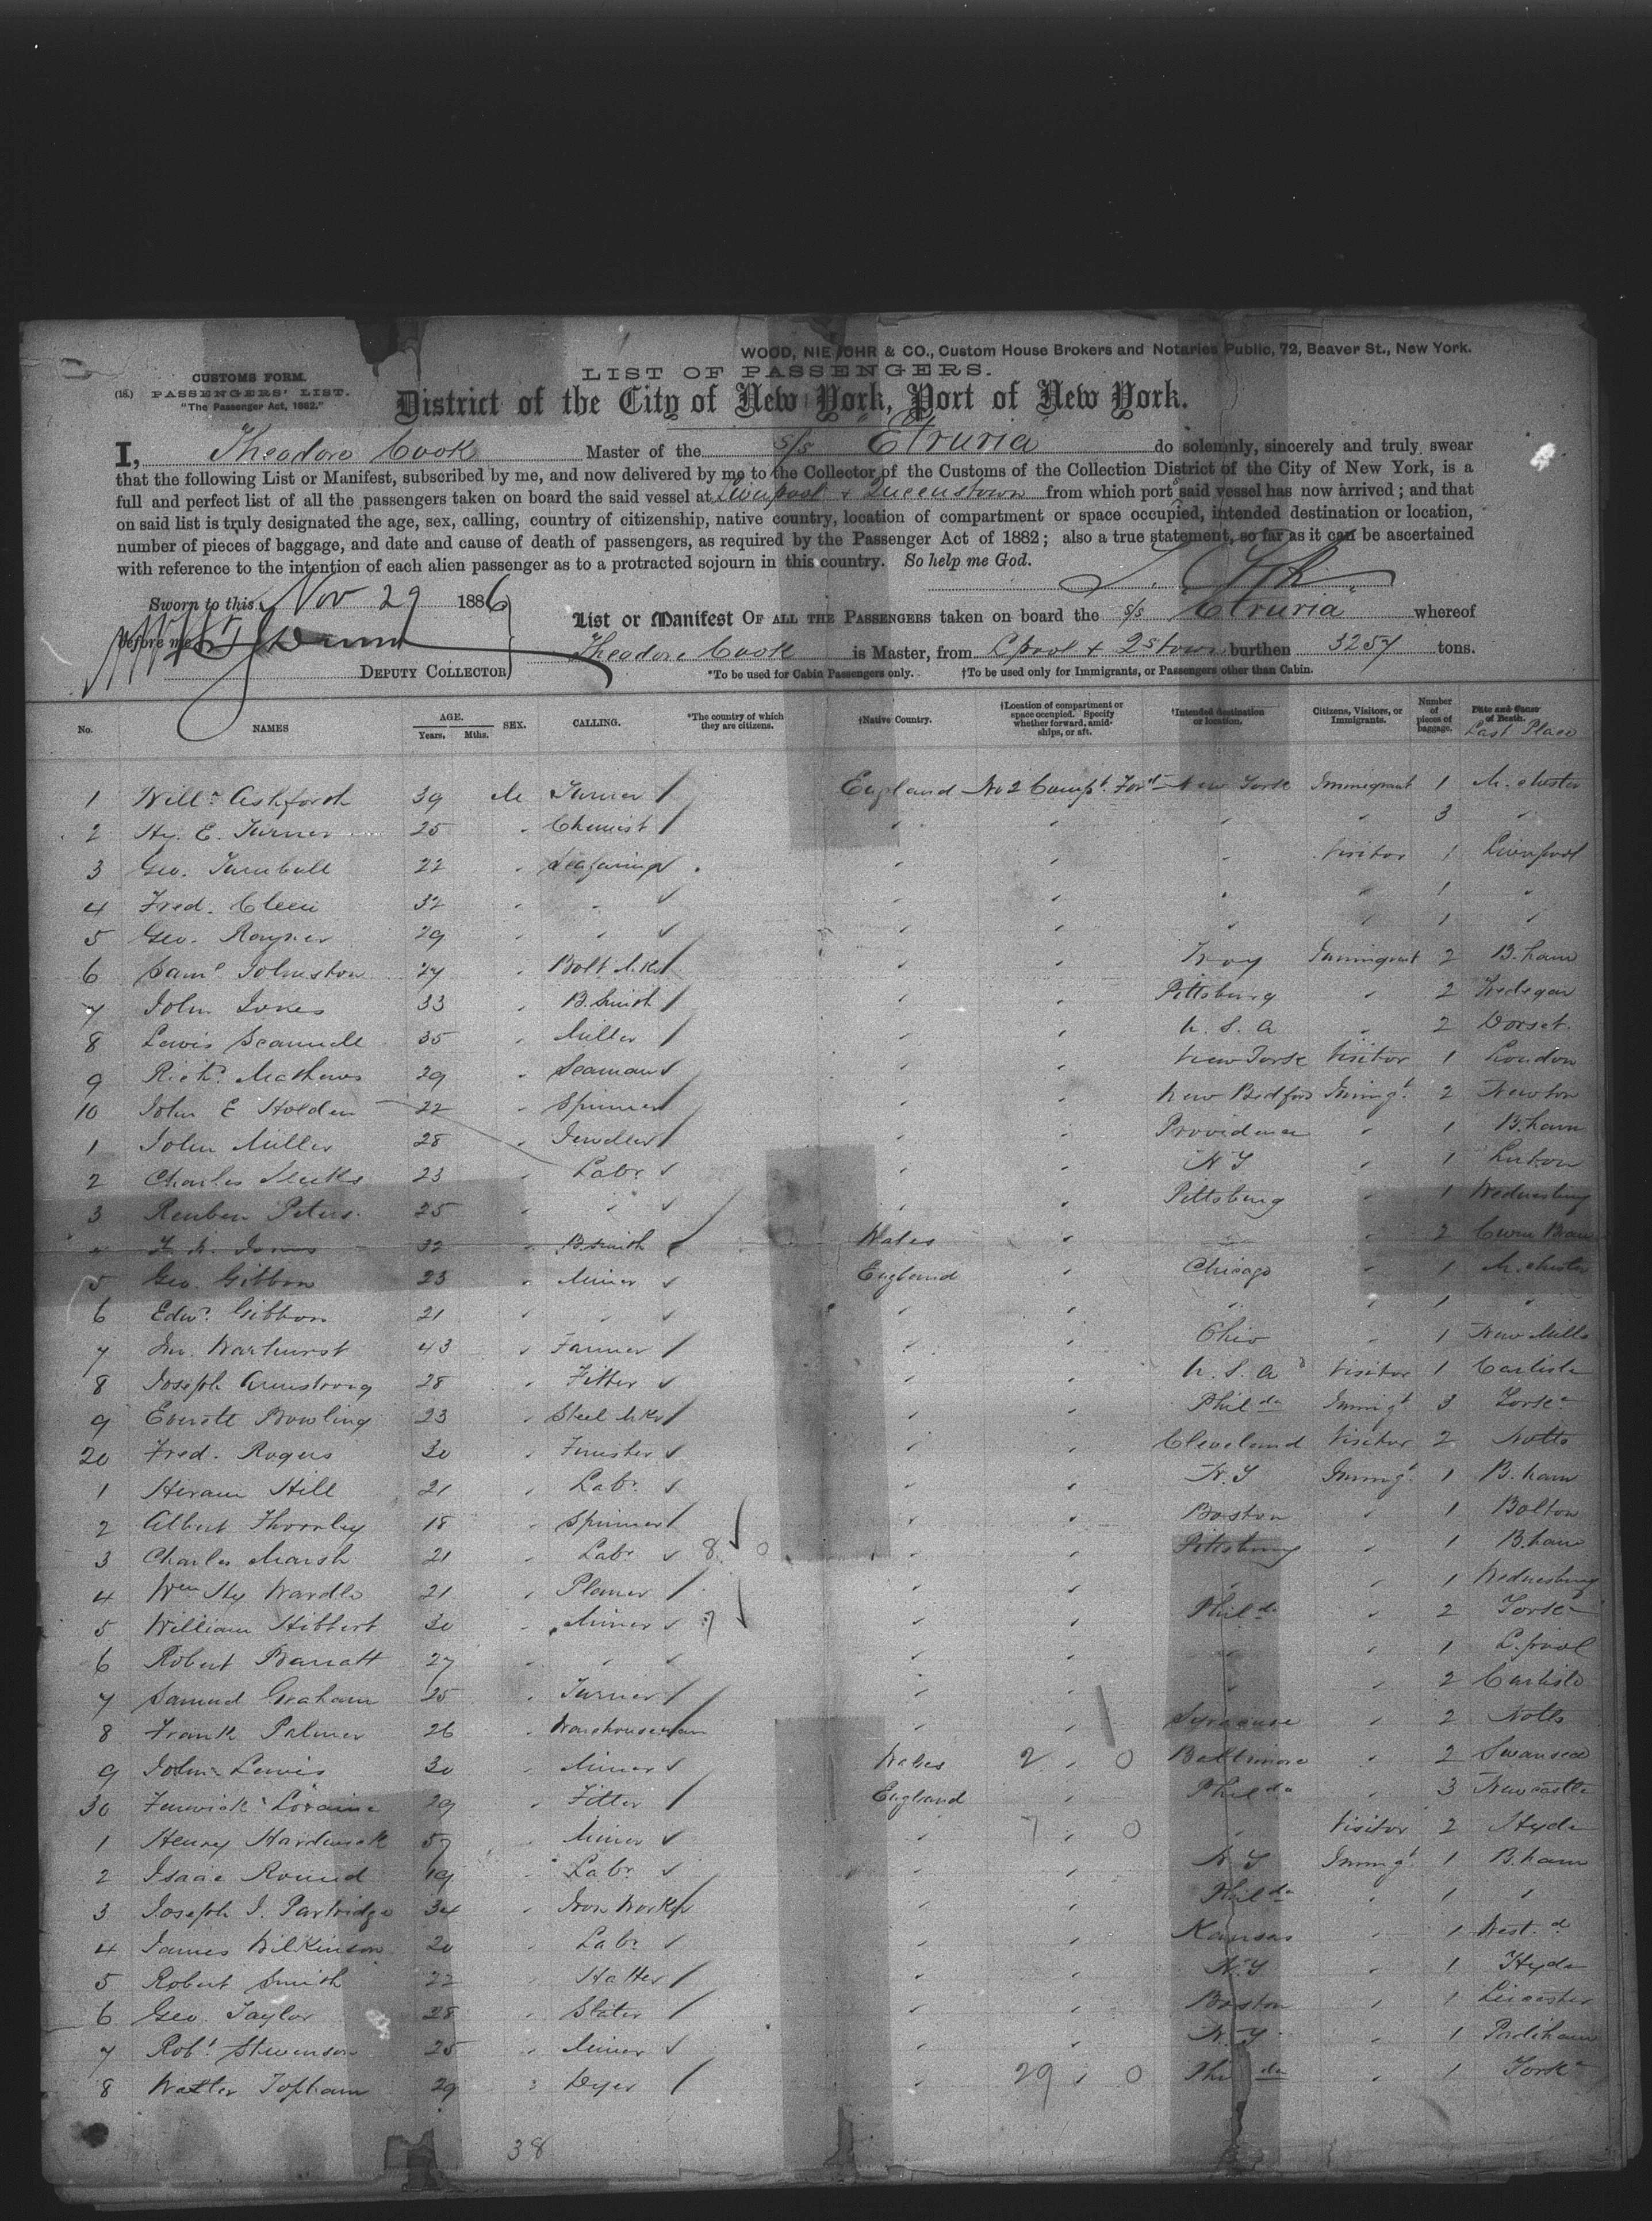 WOOD, NIEBUHR & CO., Custom House Brokers and Notaries Public, 72, Beaver St., New York.
CUSTOMS FORM.
LIST OF PASSENGERS.
(18.) PASSENGERS' LIST.
"The Passenger Act, 1882."
District of the City of New York, Port of New York.
I, Theodore Cook Master of the s/s Etruria do solemnly, sincerely and truly swear
that the following List or Manifest, subscribed by me, and now delivered by me to the Collector of the Customs of the Collection District of the City of New York, is a
full and perfect list of all the passengers taken on board the said vessel at Liverpool + Queenstown from which port s said vessel has now arrived; and that
on said list is truly designated the age, sex, calling, country of citizenship, native country, location of compartment or space occupied, intended destination or location,
number of pieces of baggage, and date and cause of death of passengers, as required by the Passenger Act of 1882; also a true statement, so far as it can be ascertained
with reference to the intention of each alien passenger as to a protracted sojourn in this country. So help me God.
Sworn to this Nov 29 1886
List or Manifest OF ALL THE PASSENGERS taken on board the s/s "Etruria" whereof
before me
Theodore Cook is Master, from L'pool + Qstown burthen 3257 tons.
DEPUTY COLLECTOR
*To be used for Cabin Passengers only. †To be used only for Immigrants, or Passengers other than Cabin.
No. NAMES AGE. Years. Mths. SEX. CALLING. *The country of which they are citizens. †Native Country. †Location of compartment or space occupied. Specify whether forward, amidships, or aft. †Intended destination or location. Citizens, Visitors, or Immigrants. Number of pieces of baggage. Date and Cause of Death. Last Place
1 Willm Ashforth 39 M Turner / England No 2 Compt. Ford New York Immigrant 1 M.chester
2 Hy. E. Turner 25 " Chemist / " " " " 3 "
3 Geo. Turnbull 22 " Seafaring " " " Visitor 1 Liverpool
4 Fred. 32 " " " " " " 1 "
5 Geo. Rayner 29 " " " " " " 1 "
6 Saml Johnston 27 " Bolt Mkr " " Troy Immigrant 2 B.ham
7 John Jones 33 " B. Smith / " " Pittsburg " 2 Tredegar
8 Lewis Scammell 35 " Miller / " " U.S.A " 2 Dorset
9 Richd. Mathews 29 " Seaman " " New York Visitor 1 London
10 John E Holden 22 " Spinner / " " New Bedford Immigt. 2 Newton
1 John Miller 28 " Jeweller / " " Providence " 1 B.ham
2 Charles Meeks 23 " Labr " " N Y " 1 Luton
3 Reuben Peters 25 " " " " Pittsburg " 1 Wednesbury
4 Jones 32 " B. Smith Wales " " " 2 Cwm Bran
5 Geo. Gibbon 23 " Miner England " Chicago " 1 M.chester
6 Edwd. Gibbon 21 " " " " " " 1 "
7 Jno. Warhurst 43 " Farmer / " " Ohio " 1 New Mills
8 Joseph Armstrong 28 " Fitter " " U.S.A Visitor 1 Carlisle
9 Bowling 23 " Steel Mkr / " " Philda Immigt 3 Yorks
20 Fred. Rogers 30 " " " Cleveland Visitor 2 Notts
1 Hiram Hill 21 " Labr. " " N.Y Immigt. 1 B.ham
2 Albert Thornley 18 " Spinner / " " Boston " 1 Bolton
3 Charles Marsh 21 " Labr 8 0 " " Pittsburg " 1 B.ham
4 Wm Hy Wardle 21 " Planer / " " " " 1 Wednesbury
5 William Hibbert 30 " Miner " " Philda " 2 Yorks
6 Robert Barratt 27 " " " " " " 1 L.pool
7 Samuel Graham 25 " Turner / " " " " 2 Carlisle
8 Frank Palmer 26 " Warehouseman " " Syracuse " 2 Notts
9 John Lewis 30 " Miner Wales 2 " 0 Baltimore " 2 Swansea
30 Fenwick Loraine 29 " Fitter / England " Philda " 3 Newcastle
1 Henry Hardwick 57 " Miner " 7 " 0 " Visitor 2 Hyde
2 Isaac Round 19 " Labr " " N Y Immigt. 1 B.ham
3 Joseph J. Partridge 34 " Iron Worker " " Philda " 1 "
4 James Wilkinson 20 " Labr " " Kansas " 1
5 Robert Smith 22 " Hatter / " " N.Y " 1 Hyde
6 Geo. Taylor 28 " Slater / " " Boston " 1 Leicester
7 Robt. Stevenson 25 " Miner " " N.Y " 1
8 Walter Topham 29 " Dyer / " 29 " 0 Philda " 1 Yorks
38